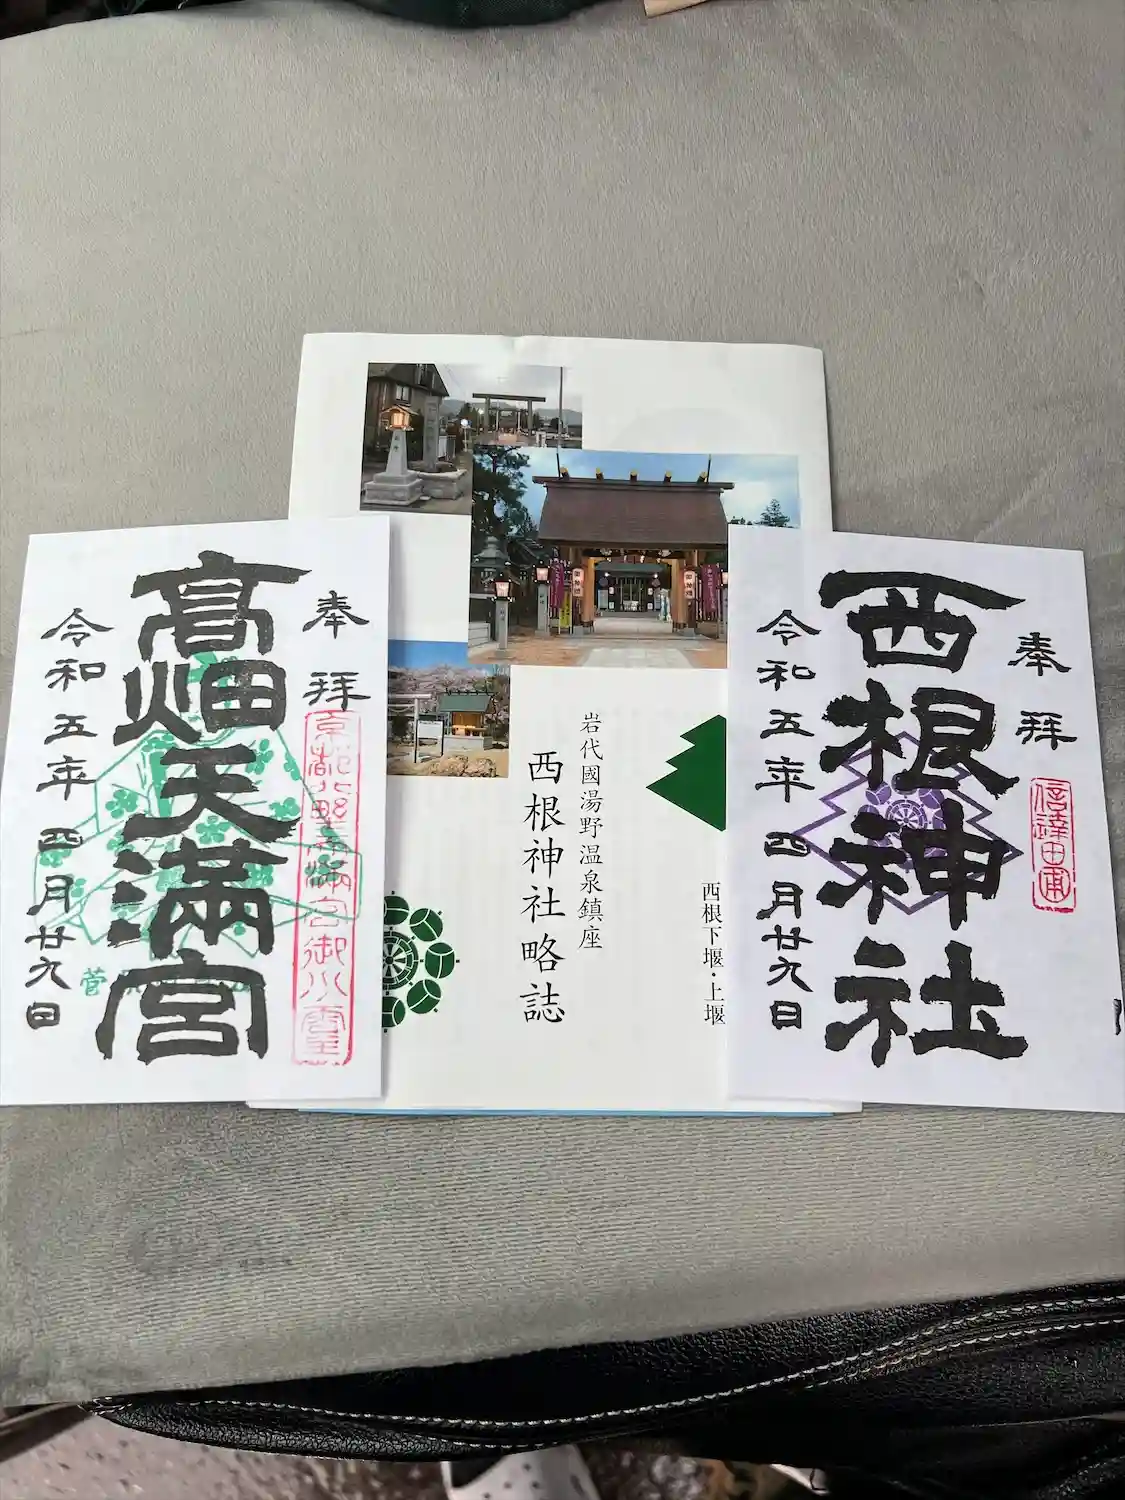 奉拝
京都北野天満宮御分霊
高畑天満宮
令和五年四月廿九日
菅
岩代國湯野温泉鎮座
西根神社略誌
西根下堰・上堰
奉拝
信達田甫
西根神社
令和五年四月廿九日